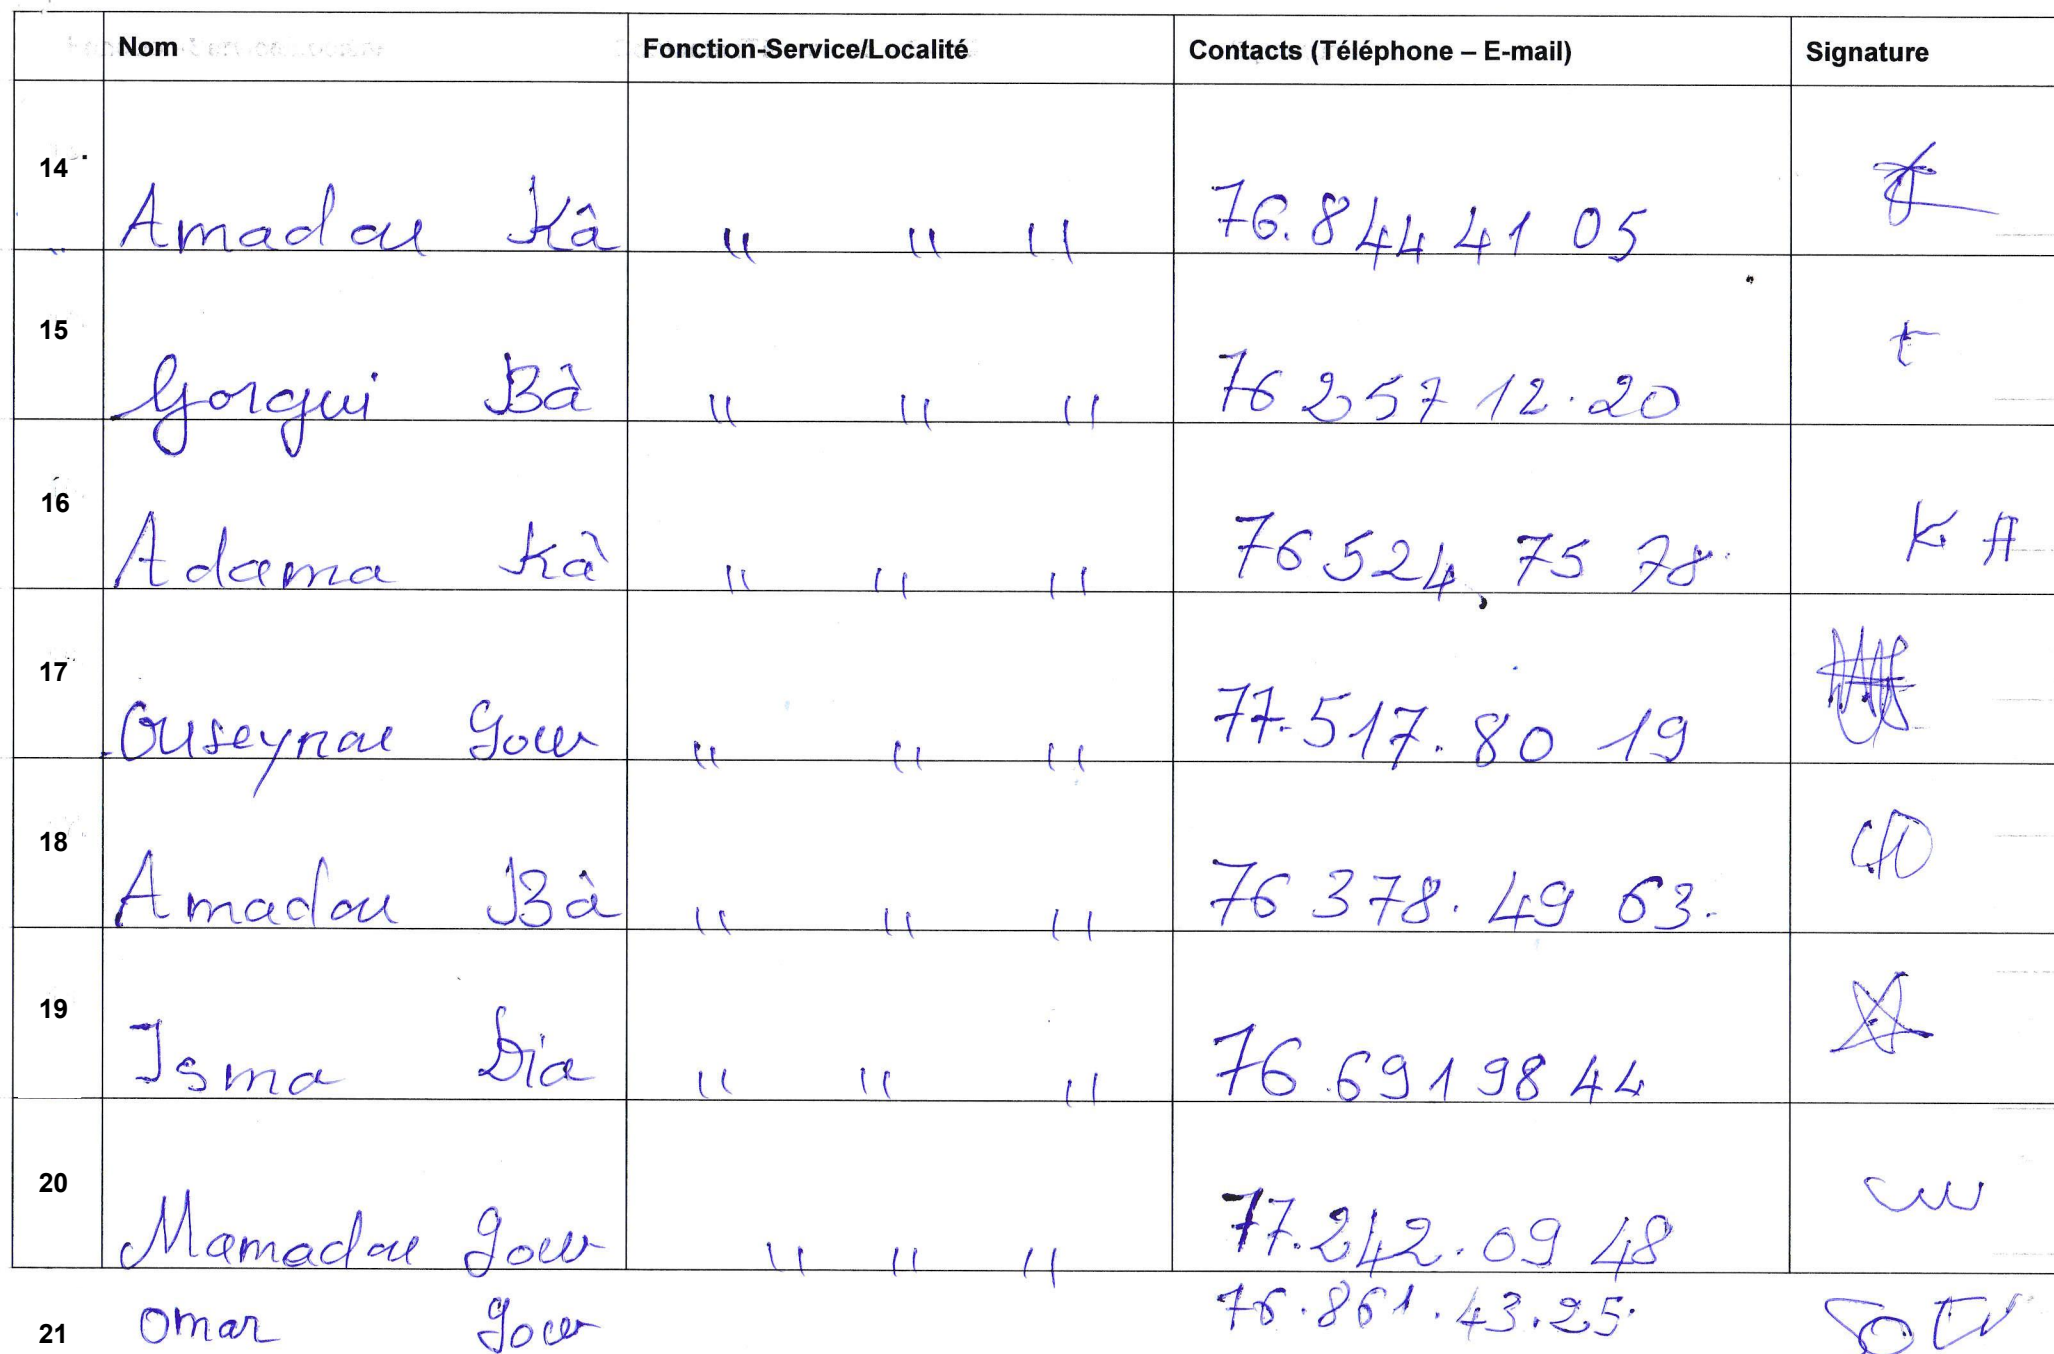 Nom Fonction-Service/Localité Contacts (Téléphone – E-mail) Signature
14 Amadou Kâ " " " 76.844 41 05
15 Gorgui Bà " " " 76 257 12.20
16 Adama Kà " " " 76 524 75 78 KA
17 Ouseynou Sow " " " 77.517.80 19
18 Amadou Bà " " " 76 378.49 63.
19 Isma Dia " " " 76 691 98 44
20 Mamadou Sow " " " 77.242.09 48
21 Omar Sow 76.861.43.25.